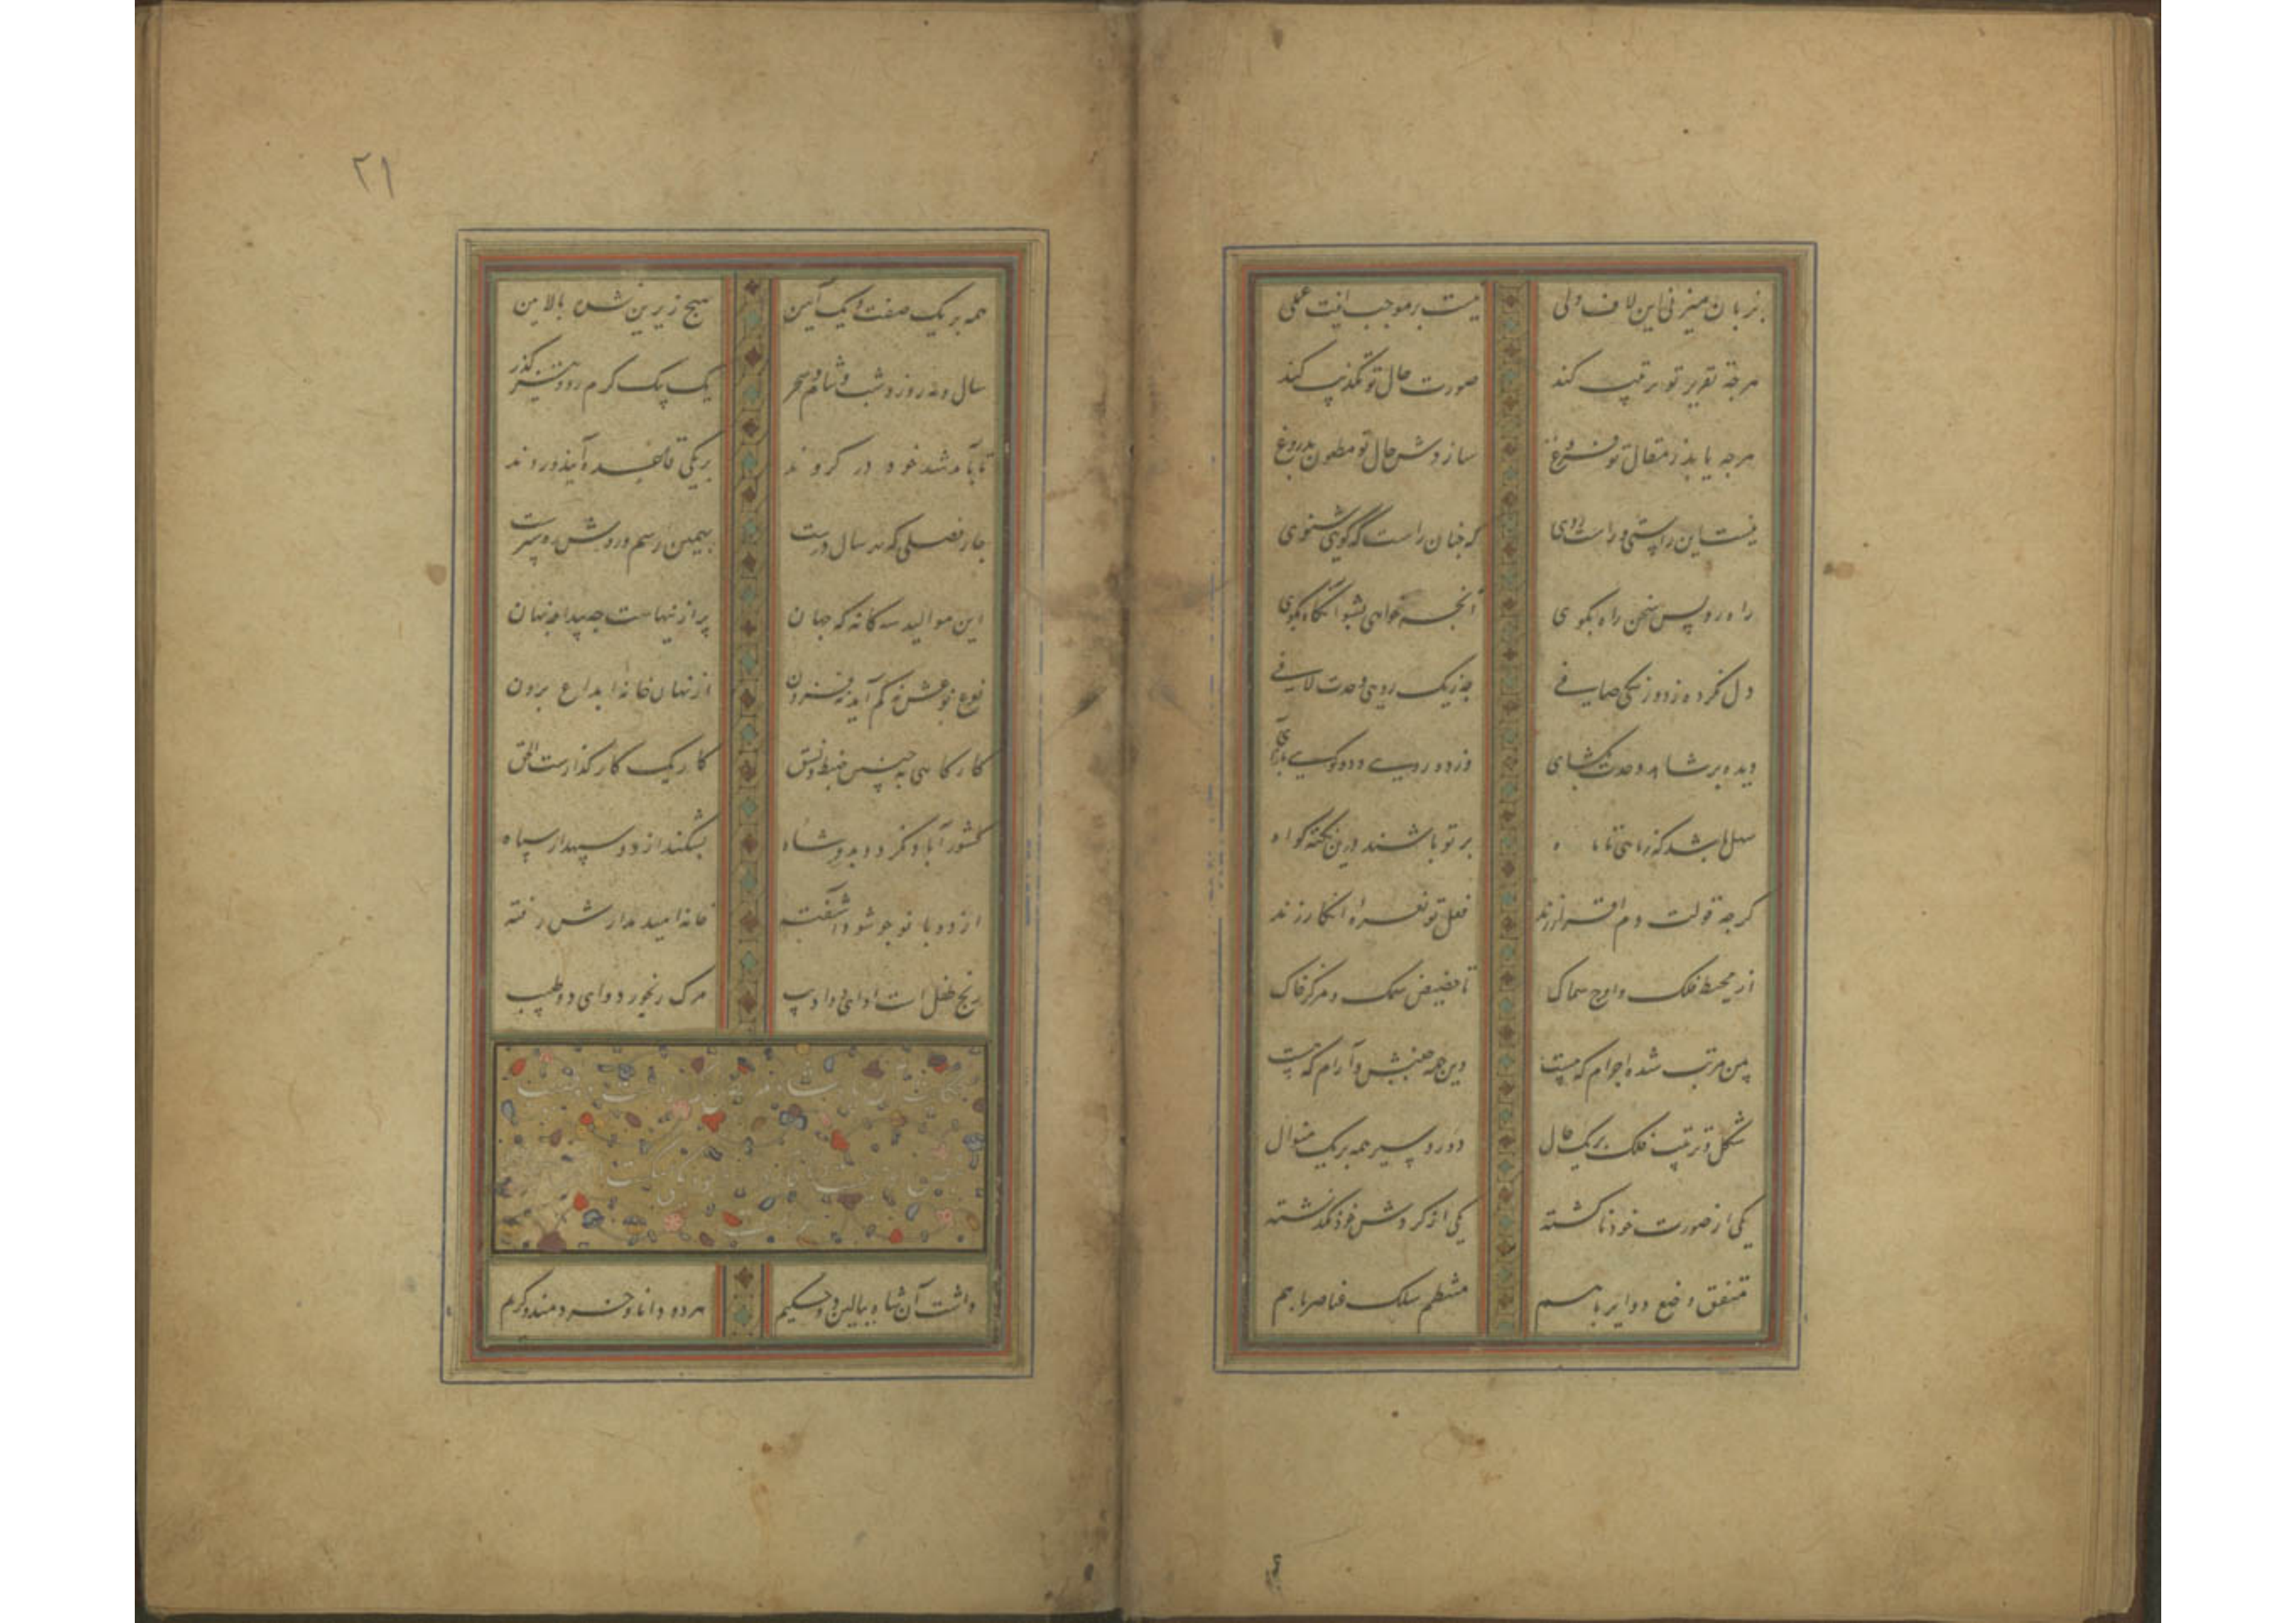 بزبان میزنی این لاف ولی نیست برموجب اینت عملی
هرچه تقریر تو ترتیب کند صورت حال تو تکذیب کند
هرچه یابد ز مقال تو فروغ سازدش حال تو مطعون بدروغ
نیست این راستی و راست روی که چنان راست که گویی شنوی
راه رو پس سخن راه بگوی آنچه خواهی بشو آنگاه بگوی
دل نکرده ز دو رنگی صافی چه ز یک رویی وحدت لافی
دیده بر شاهد وحدت بگشای وز دو رویی و دو گویی بازآی
بر تو باشند درین نکته گواه
گرچه قولت دم اقرار زند فعل تو نعره انکار زند
از محیط فلک و اوج سماک تا حضیض سمک و مرکز خاک
بین مرتب شده اجرام که چیست وین همه جنبش و آرام که چیست
شکل و ترتیب فلک بر یک حال دور و سیر همه بر یک منوال
یکی از صورت خود ناگشته یکی از گردش خود نگذشته
متفق وضع دوایر با هم منتظم سلک عناصر با هم
۲۱
همه بر یک صفت و یک آیین هیچ زیرین نشده بالایین
سال و مه روز و شب و شام و سحر یک بیک گرم رو و تیز گذر
تا بآمد شد خود در گروند بر یکی قاعده آیند و روند
چار فصلی که بهر سال درست بهمین رسم و روش رهسپرست
این موالید سه گانه که جهان پر از اینهاست چه پیدا چه نهان
نوع نوعش نه کم آید نه فزون از نهان خانه ابداع برون
کار گاهی به چنین ضبط و نسق کار یک کار گذارست الحق
کشور آباد نگردد بدو شاه بشکند از دو سپهدار سپاه
از دو بانو چو شود آشفته خانه امید مدارش رفته
رنج طفل است ادای دو ادیب مرگ رنجور دوای دو طبیب
داشت آن شاه ببالین دو حکیم هر دو دانا و خردمند و کریم